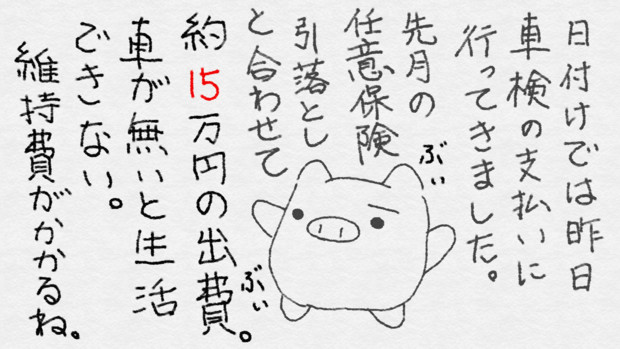 日付けでは昨日
車検の支払いに
行ってきました。
先月の
任意保険
引落とし
と合わせて
約15万円の出費。
車が無いと生活
できない。
維持費がかかるね。
ぶぃ
ぶぃ